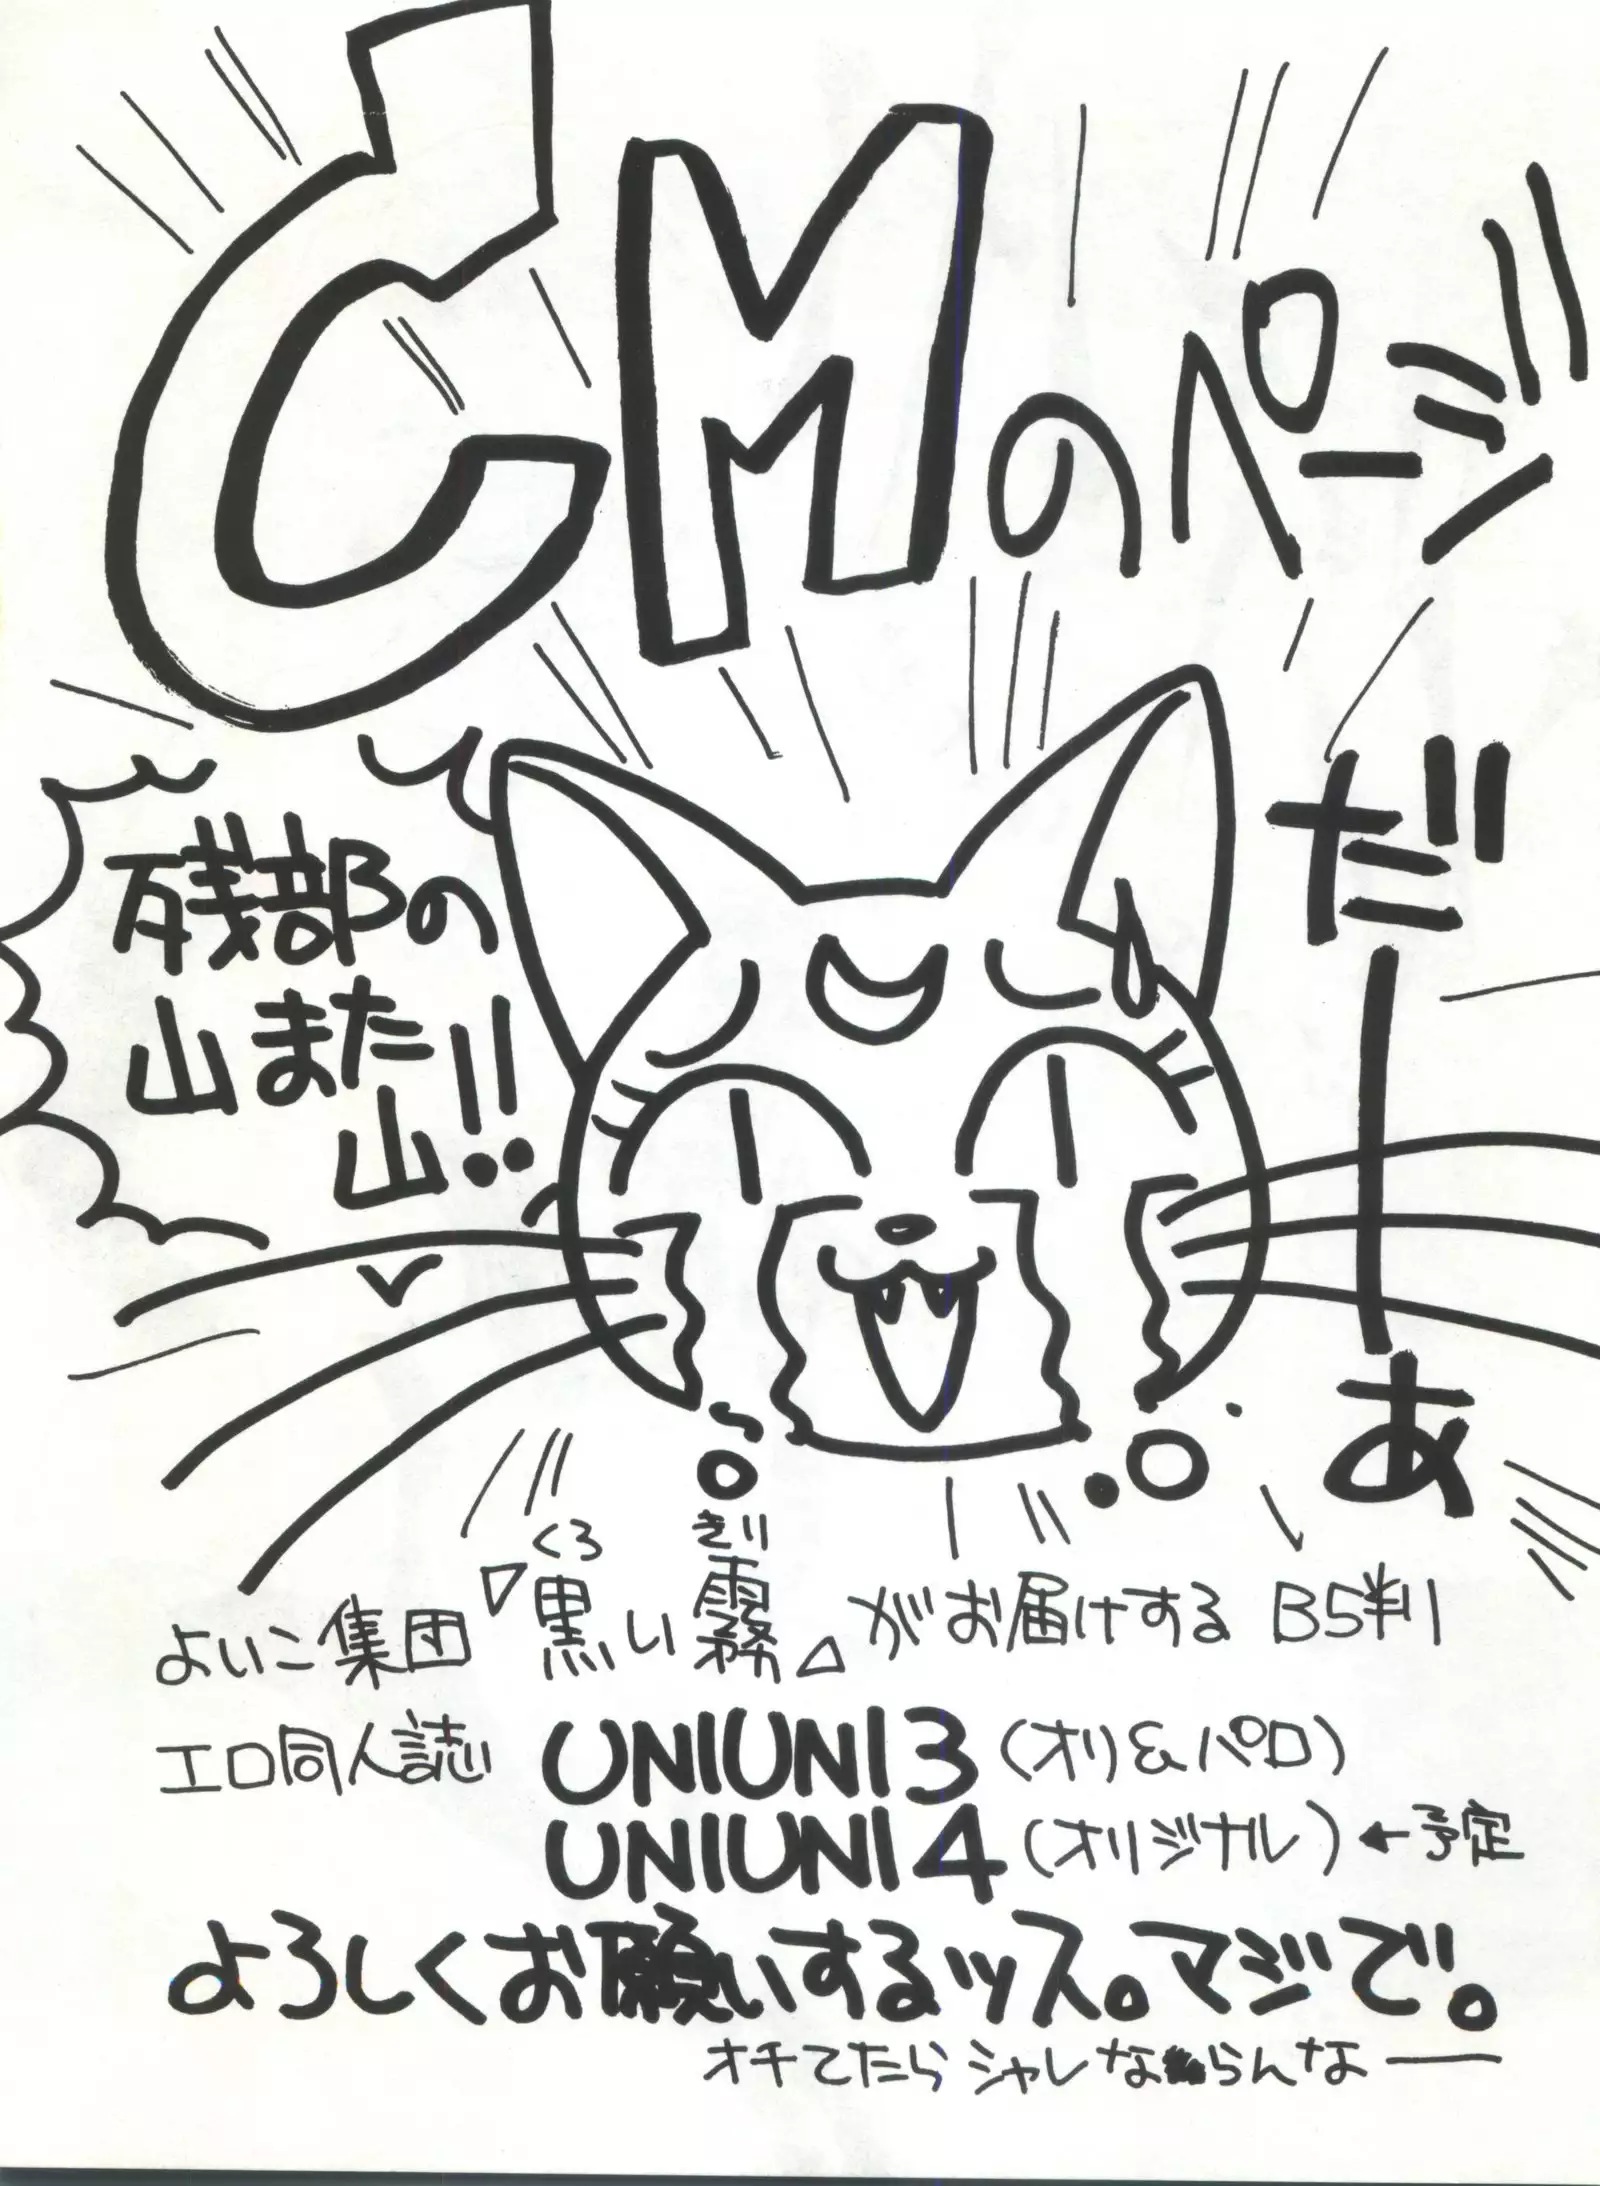 CMのページ
だーあ
残部の
山また
山!!
くろ きり
よいこ集団『黒い霧』がお届けするB5判
エロ同人誌 UNIUNI3(オリ&パロ)
UNIUNI4(オリジナル)←予定
よろしくお願いするッス。マジで。
オチてたらシャレならんなー